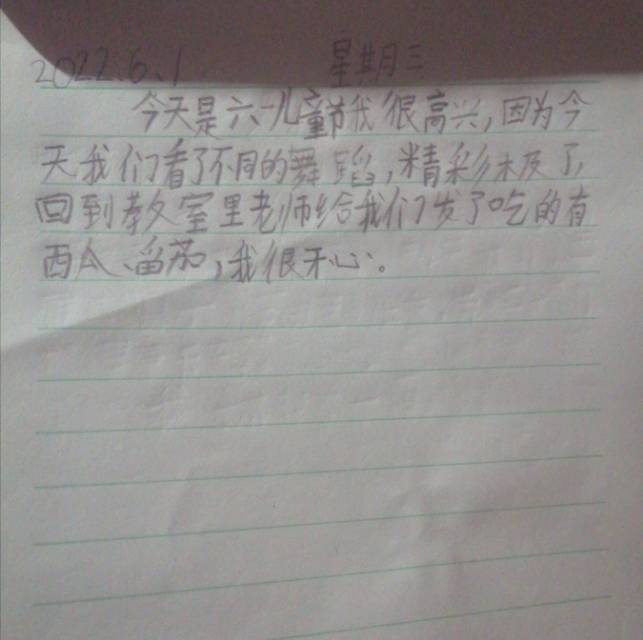 2022.6.1 星期三
今天是六一儿童节我很高兴,因为今
天我们看了不同的舞蹈,精彩极了,
回到教室里老师给我们发了吃的有
西瓜、番茄,我很开心。